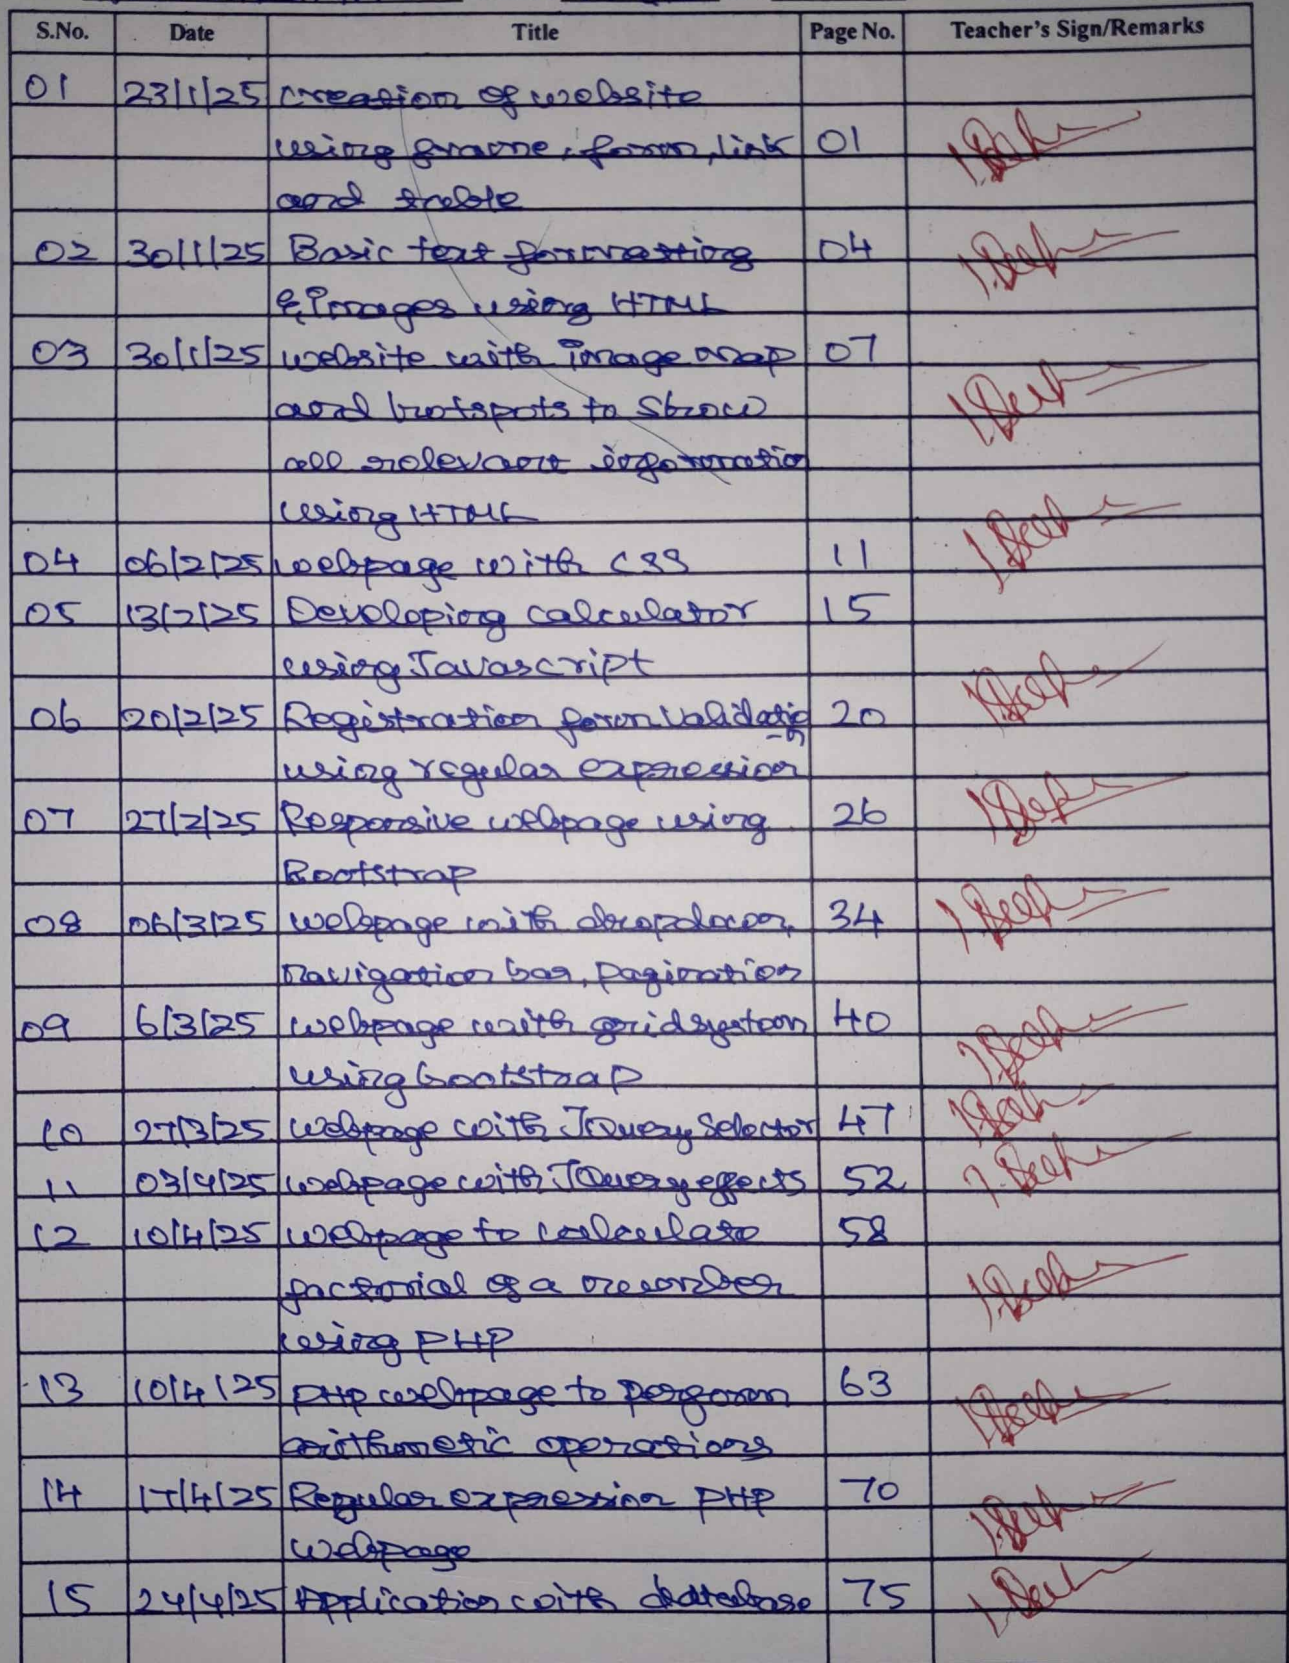 S.No. Date Title Page No. Teacher's Sign/Remarks
01 23/1/25 Creation of website
using frame, form, link 01
and table
02 30/1/25 Basic text formatting 04
& Images using HTML
03 30/1/25 website with Image map 07
and hotspots to show
all relevant information
using HTML
04 06/2/25 webpage with CSS 11
05 13/2/25 Developing calculator 15
using Javascript
06 20/2/25 Registration form Validatio 20
-n
using regular expression
07 27/2/25 Responsive webpage using 26
Bootstrap
08 06/3/25 webpage with dropdown, 34
Navigation bar, pagination
09 6/3/25 webpage with gridsystem 40
using bootstrap
10 27/3/25 webpage with JQuery Selector 47
11 03/4/25 webpage with JQuery effects 52
12 10/4/25 webpage to calculate 58
factorial of a number
using PHP
13 10/4/25 PHP webpage to perform 63
arithmetic operations
14 17/4/25 Regular expression PHP 70
webpage
15 24/4/25 Application with database 75